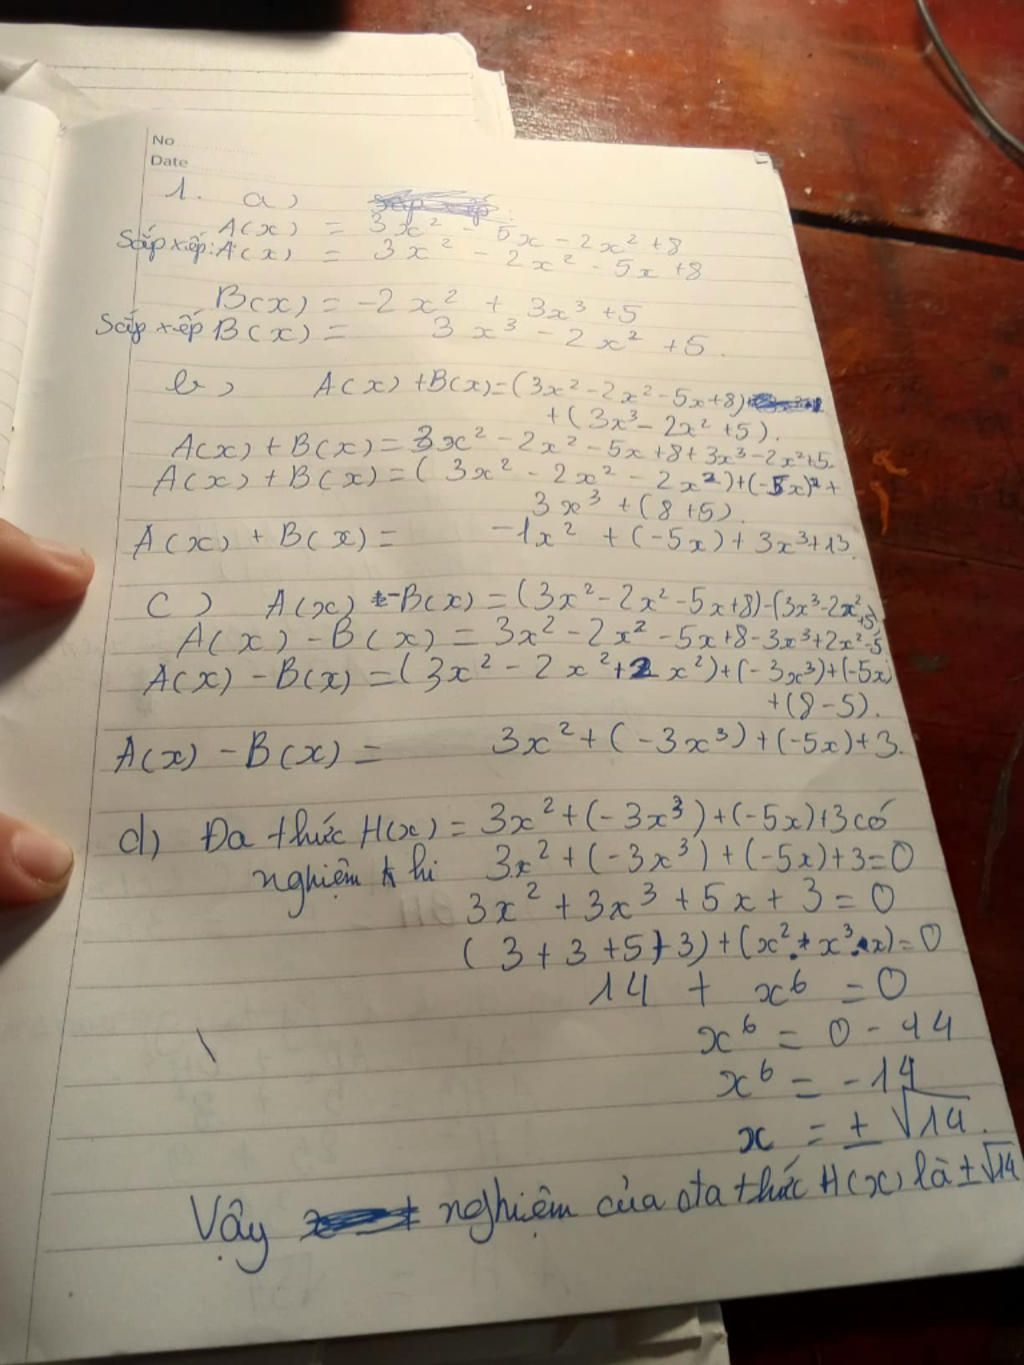 No
Date
1. a)
A(x) = 3x² - 5x - 2x² + 8
Sắp xếp: A(x) = 3x² - 2x² - 5x + 8
B(x) = -2x² + 3x³ + 5
Sắp xếp B(x) = 3x³ - 2x² + 5.
b) A(x) + B(x) = (3x² - 2x² - 5x + 8)
+ (3x³ - 2x² + 5).
A(x) + B(x) = 3x² - 2x² - 5x + 8 + 3x³ - 2x² + 5.
A(x) + B(x) = (3x² - 2x² - 2x²) + (-5x)² +
3x³ + (8 + 5).
A(x) + B(x) = -1x² + (-5x) + 3x³ + 13.
c) A(x) - B(x) = (3x² - 2x² - 5x + 8) - (3x³ - 2x² + 5)
A(x) - B(x) = 3x² - 2x² - 5x + 8 - 3x³ + 2x² - 5
A(x) - B(x) = (3x² - 2x² + 2x²) + (-3x³) + (-5x)
+ (8 - 5).
A(x) - B(x) = 3x² + (-3x³) + (-5x) + 3.
d) Đa thức H(x) = 3x² + (-3x³) + (-5x) + 3 có
nghiệm khi 3x² + (-3x³) + (-5x) + 3 = 0
3x² + 3x³ + 5x + 3 = 0
(3 + 3 + 5 + 3) + (x² . x³ . x) = 0
14 + x⁶ = 0
x⁶ = 0 - 14
x⁶ = -14
x = ± √14.
Vậy nghiệm của đa thức H(x) là ± √14